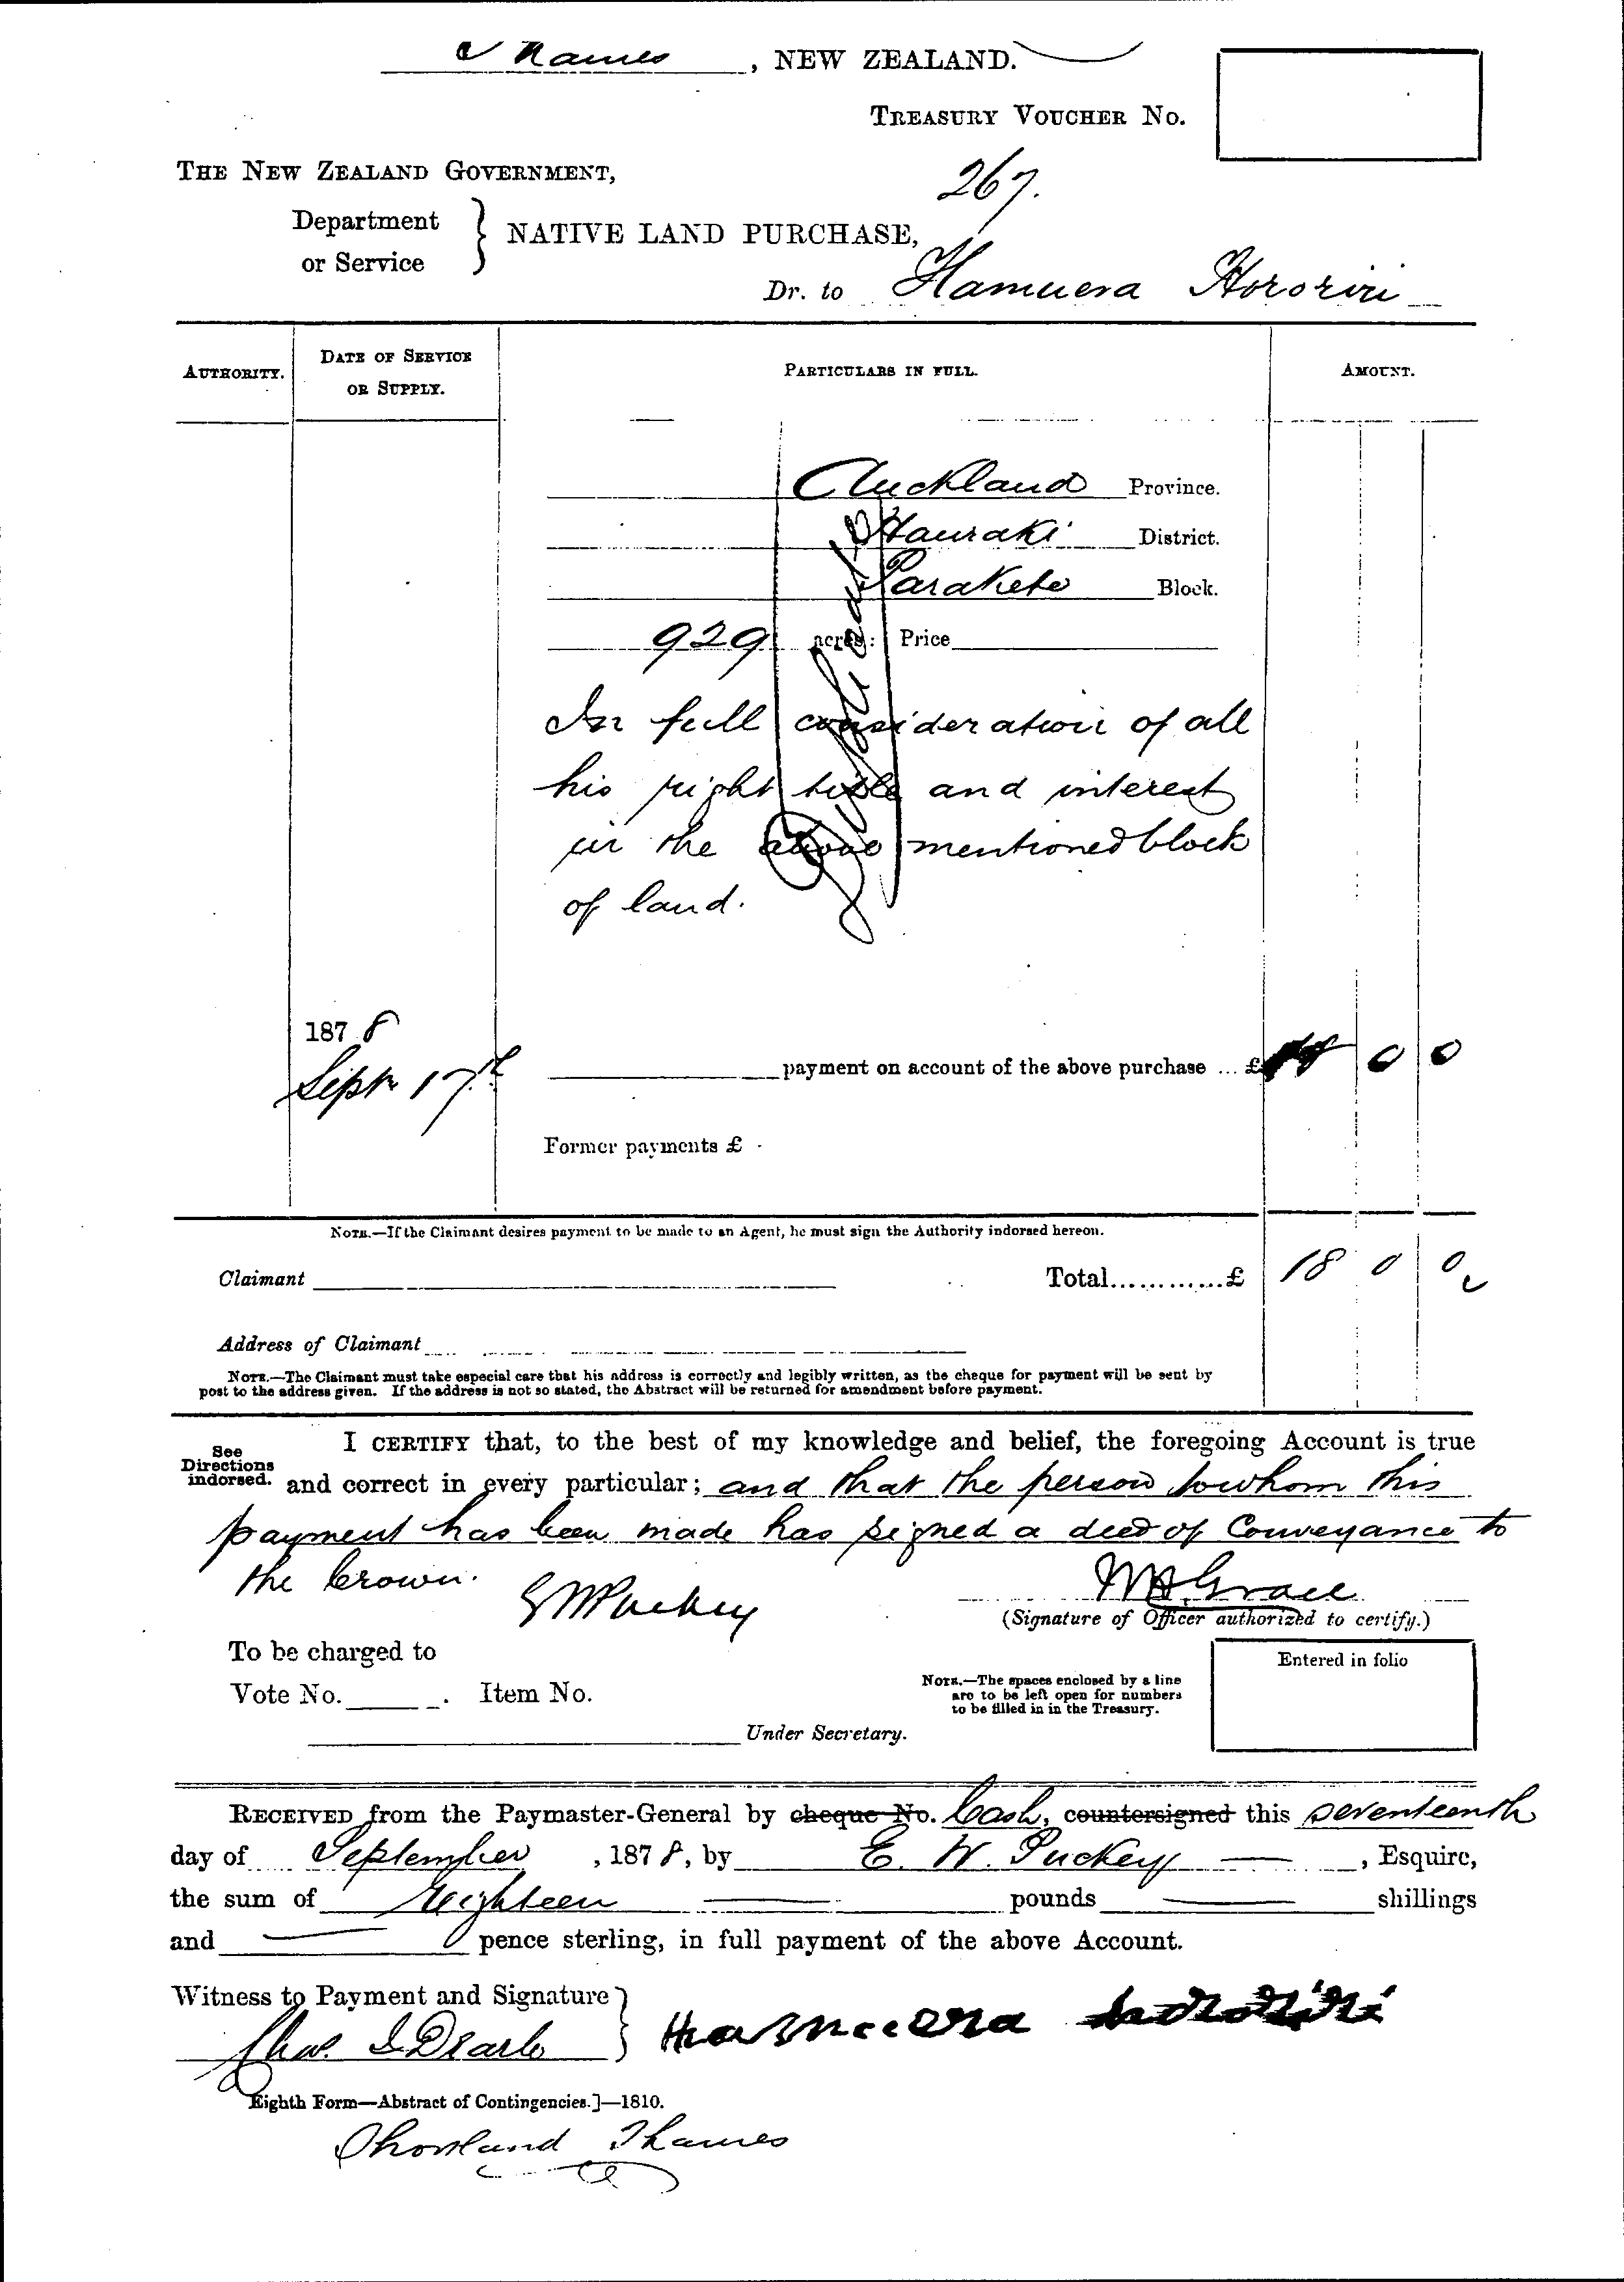 Thames, NEW ZEALAND.
TREASURY VOUCHER NO.
THE NEW ZEALAND GOVERNMENT,
267.
Department
or Service } NATIVE LAND PURCHASE,
Dr. to Hamuera Hororirii
AUTHORITY. DATE OF SERVICE OR SUPPLY. PARTICULARS IN FULL. AMOUNT.
Auckland Province.
Hauraki District.
Parakete Block.
929 acres: Price
In full consideration of all
his right title and interest
in the above mentioned block
of land.
Duplicate
1878
Septr 17th payment on account of the above purchase ... £ 0 0
Former payments £
NOTE.—If the Claimant desires payment to be made to an Agent, he must sign the Authority indorsed hereon.
Claimant Total............£ 18 0 0
Address of Claimant
NOTE.—The Claimant must take especial care that his address is correctly and legibly written, as the cheque for payment will be sent by
post to the address given. If the address is not so stated, the Abstract will be returned for amendment before payment.
See Directions indorsed.
I CERTIFY that, to the best of my knowledge and belief, the foregoing Account is true
and correct in every particular; and that the person to whom this
payment has been made has signed a deed of Conveyance to
the Crown.
EWPuckey
WHGrace
(Signature of Officer authorized to certify.)
To be charged to
Vote No. . Item No.
NOTE.—The spaces enclosed by a line
are to be left open for numbers
to be filled in in the Treasury.
Entered in folio
Under Secretary.
RECEIVED from the Paymaster-General by cheque No. Cash, countersigned this seventeenth
day of September, 1878, by E. W. Puckey, Esquire,
the sum of Eighteen pounds shillings
and pence sterling, in full payment of the above Account.
Witness to Payment and Signature }
Hamuera
Eighth Form—Abstract of Contingencies.]—1810.
Shortland Thames